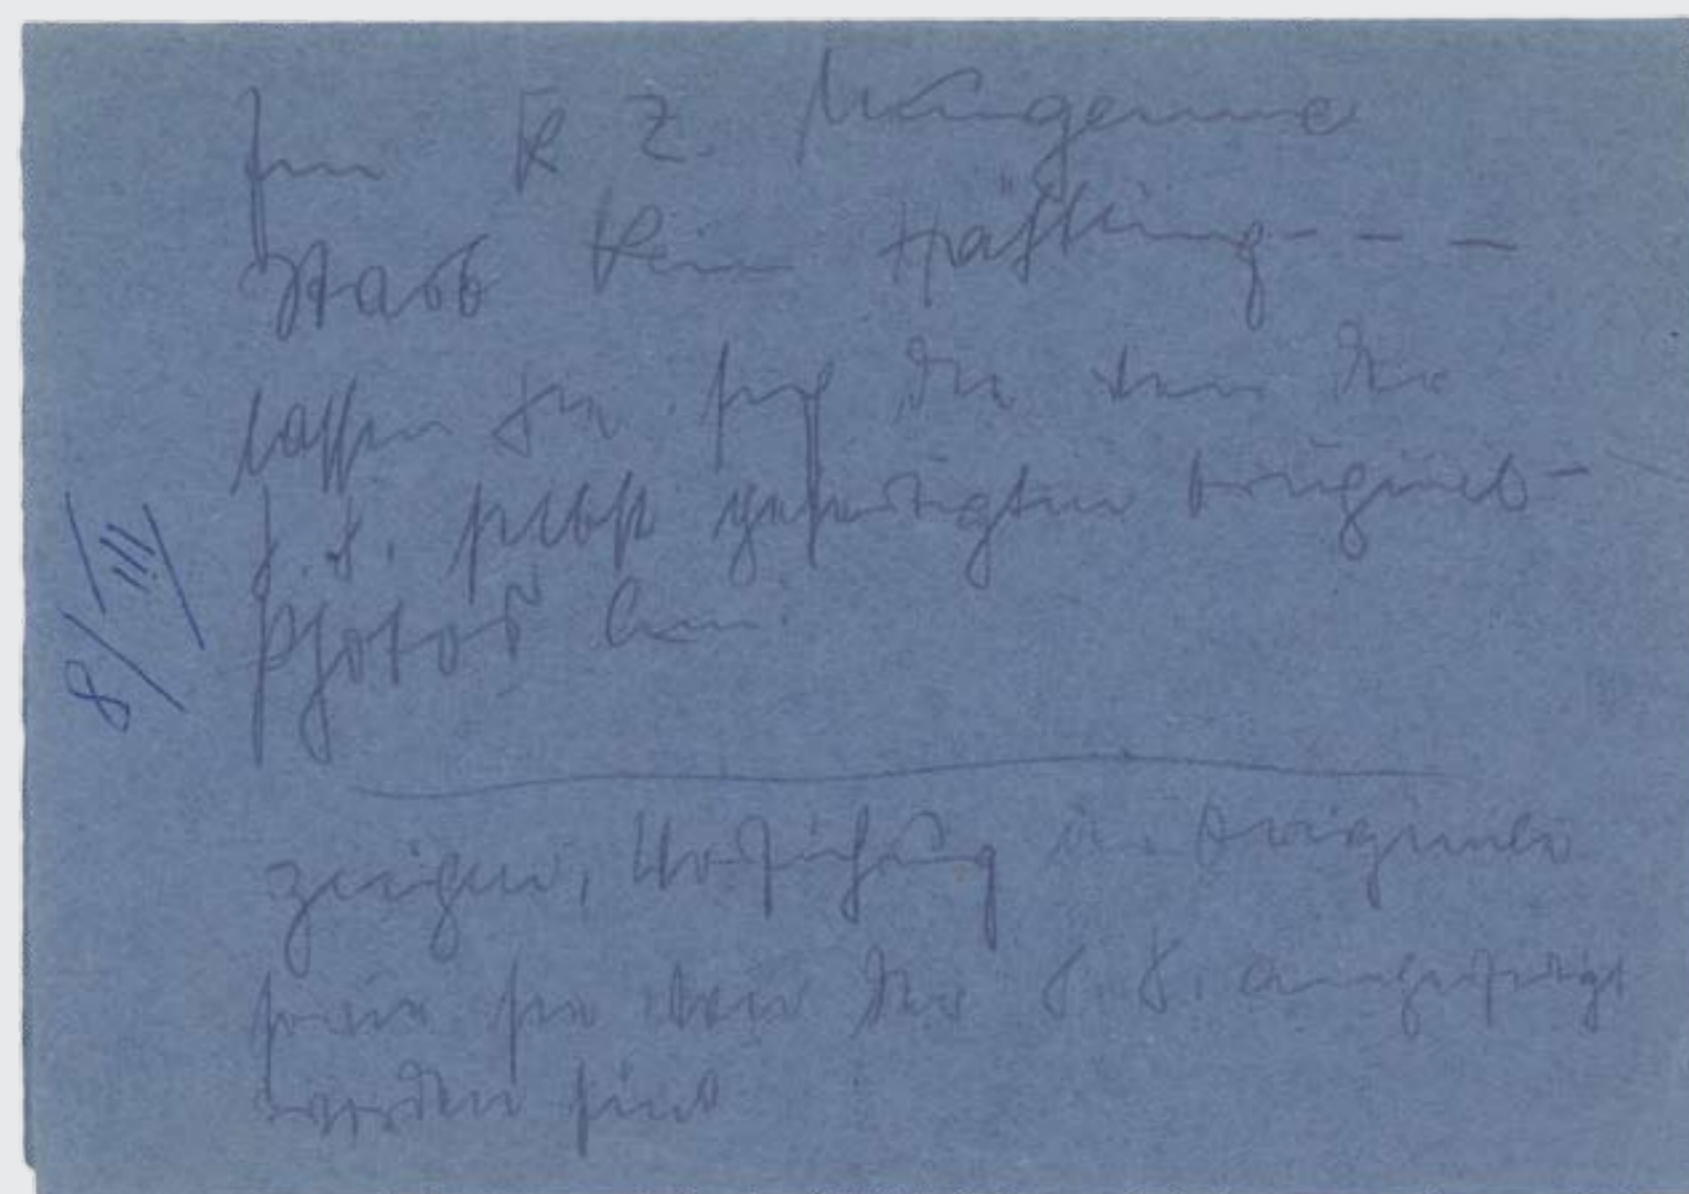 Im K Z.
starb kein Häftling - - -
lassen Sie sich die von der
S.S. selbst gefertigten Original-
Photos
zeigen, Vorführung in Original
sowie sie von der S.S. angefertigt
worden sind
8/III